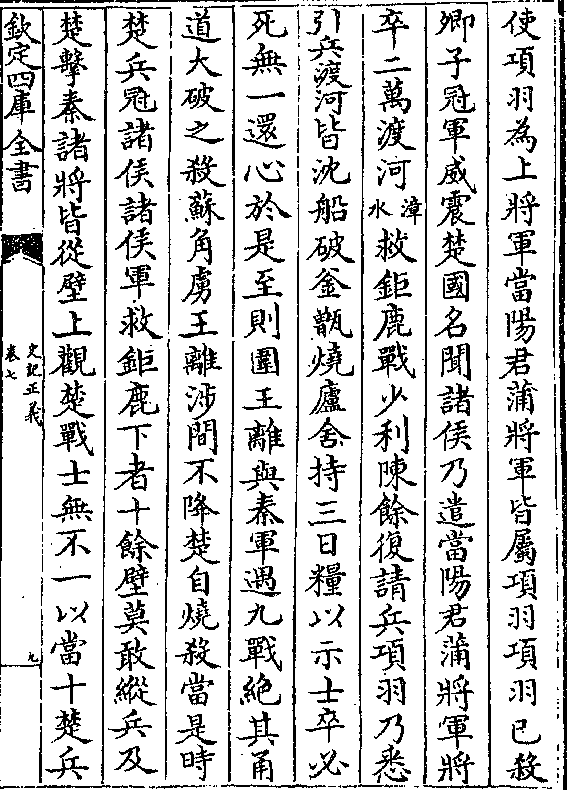 使項羽為上將軍當陽君蒲將軍皆屬項羽項羽已殺
卿子冠軍威震楚國名聞諸侯乃遣當陽君蒲將軍將
卒二萬渡河漳水救鉅鹿戰少利陳餘復請兵項羽乃悉
引兵渡河皆沈船破釜甑燒廬舍持三日糧以示士卒必
死無一還心於是至則圍王離與秦軍遇九戰絶其甬
道大破之殺蘇角虜王離涉間不降楚自燒殺當是時
楚兵冠諸侯諸侯軍救鉅鹿下者十餘壁莫敢縱兵及
楚擊秦諸將皆從壁上觀楚戰士無不一以當十楚兵
欽定四庫全書
史記正義
卷七
九